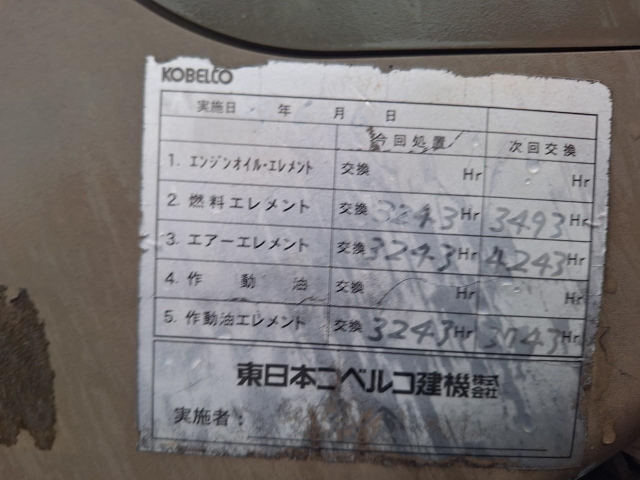 KOBELCO
実施日 年 月 日
今回処置 次回交換
1. エンジンオイル・エレメント 交換 Hr Hr
2. 燃料エレメント 交換 3243 Hr 3493 Hr
3. エアーエレメント 交換 3243 Hr 4243 Hr
4. 作動油 交換 Hr Hr
5. 作動油エレメント 交換 3243 Hr 3743 Hr
東日本コベルコ建機株式会社
実施者: